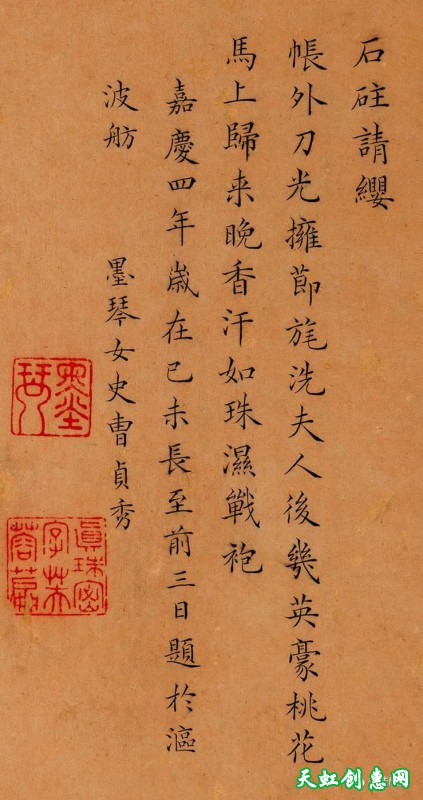 石砫請纓
帳外刀光擁節旄洗夫人後幾英豪桃花
馬上歸来晚香汗如珠濕戰袍
嘉慶四年歲在己未長至前三日題於漚
波舫 墨琴女史曹貞秀
墨琴
眞珠密
字芙
天虹创惠网